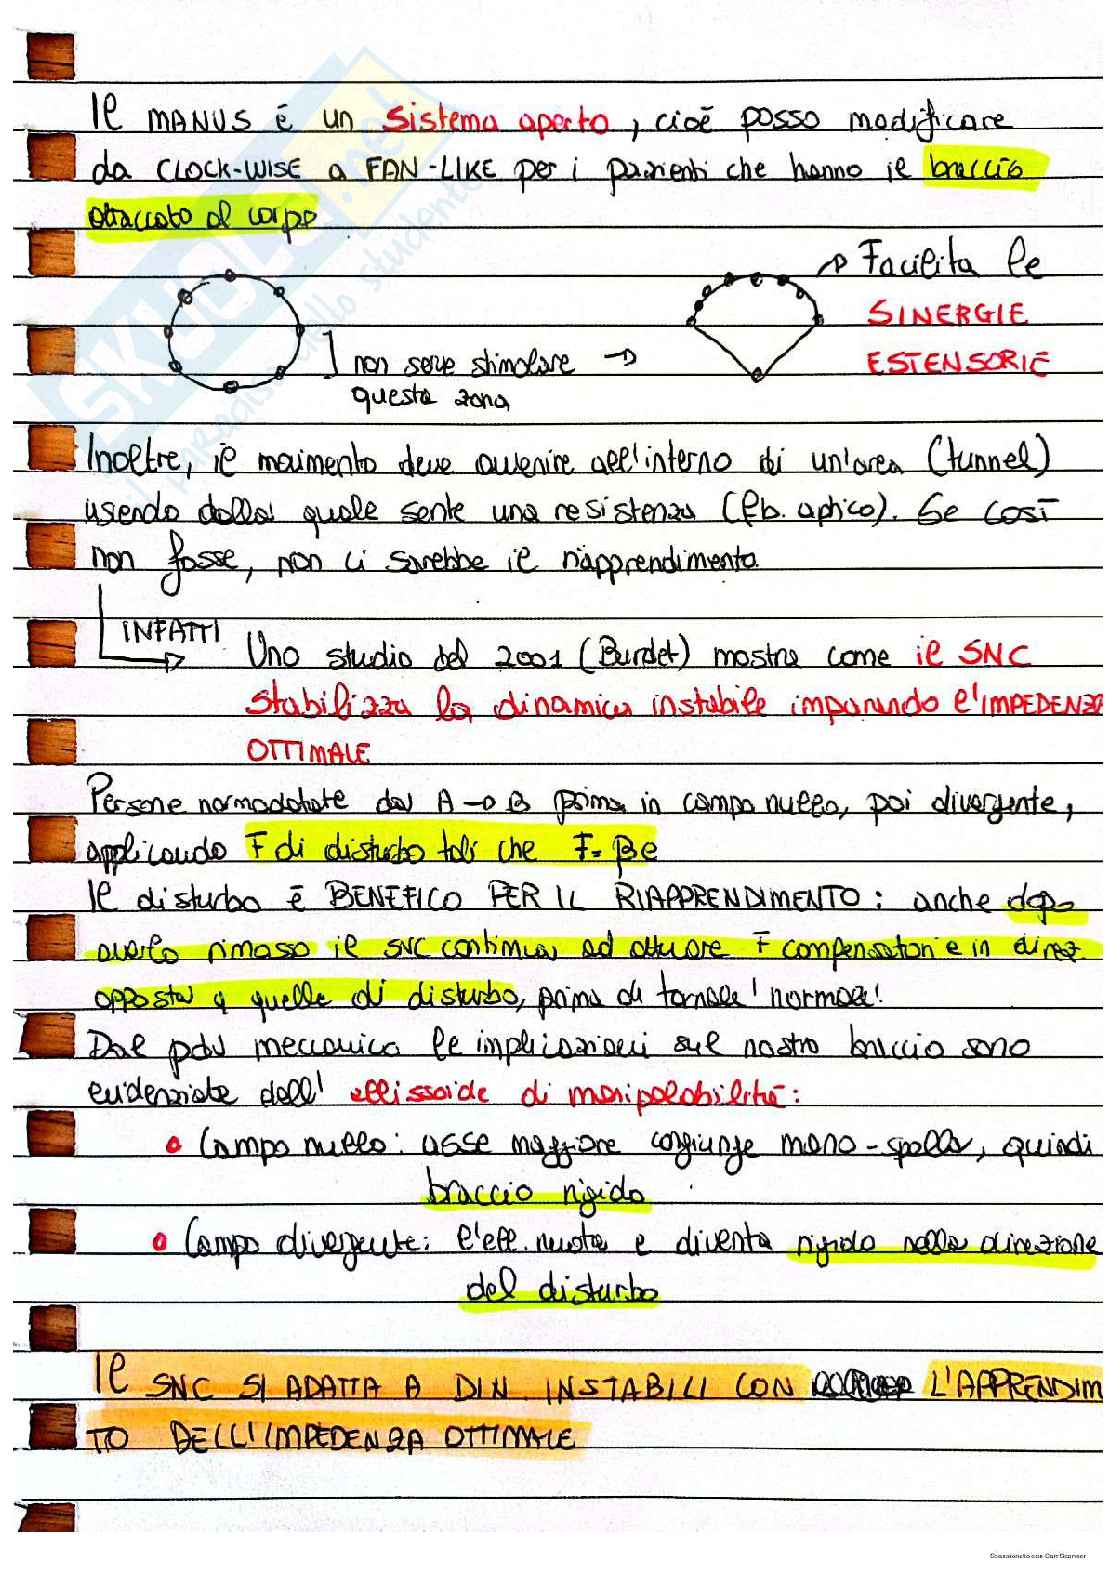 Il MANUS è un sistema aperto, cioè posso modificare
da CLOCK-WISE a FAN-LIKE per i pazienti che hanno il braccio
attaccato al corpo
Facilita le
SINERGIE
ESTENSORIE
non serve stimolare
questa zona
Inoltre, il movimento deve avvenire all'interno di un'area (tunnel)
uscendo dalla quale sente una resistenza (fb. aptico). Se così
non fosse, non ci sarebbe il riapprendimento.
INFATTI
Uno studio del 2001 (Burdet) mostra come il SNC
stabilizza la dinamica instabile imparando l'IMPEDENZA
OTTIMALE
Persone normodotate da A → B prima in campo nullo, poi divergente,
applicando F di disturbo tali che F= βe
Il disturbo è BENEFICO PER IL RIAPPRENDIMENTO: anche dopo
averlo rimosso il SNC continua ad attuare F compensatorie in direz
opposta a quelle di disturbo, prima di tornare 'normale'.
Dal pdv meccanico le implicazioni sul nostro braccio sono
evidenziate dall' ellissoide di manipolabilità:
Campo nullo: asse maggiore congiunge mano-spalla, quindi
braccio rigido
Campo divergente: l'ell. ruota e diventa rigido nella direzione
del disturbo
Il SNC SI ADATTA A DIN. INSTABILI CON L'APPRENDIM
TO DELL'IMPEDENZA OTTIMALE
Scansionato con CamScanner